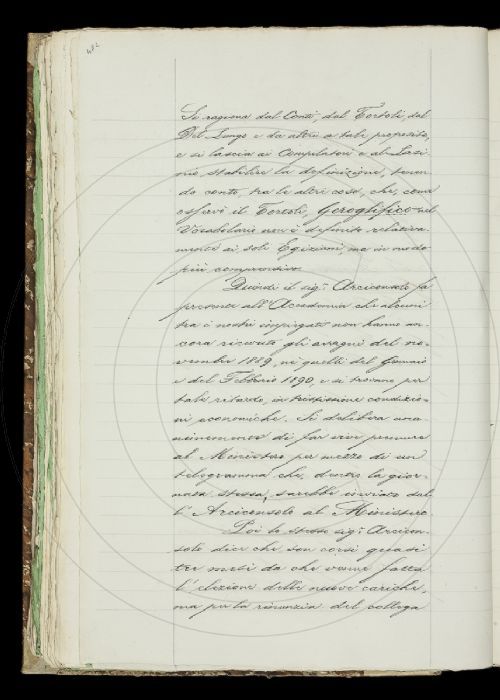 482
Si ragiona dal Conti, dal Tortoli, dal
Del Lungo e da altri a tale proposito,
e si lascia ai Compilatori e al
stabilire la definizione, tenen-
do conto, tra le altre cose, che, come
osservò il Tortoli, Geroglifico nel
Vocabolario non è definito relativa-
mente ai soli Egiziani, ma in modo
più comprensivo.
Quindi il sig.r Arciconsolo fa
presente all'Accademia che alcuni
tra i nostri impiegati non hanno an-
cora ricevuto gli assegni del no-
vembre 1889, nè quelli del Gennaio
e del Febbraio 1890, e si trovano per
tale ritardo, in tristissime condizio-
ni economiche. Si delibera una-
nimemente di far vive premure
al Ministero per mezzo di un
telegramma che, dentro la gior-
nata stessa, sarebbe inviato dal-
l'Arciconsolo al Ministero.
Poi lo stesso sig.r Arcicon-
solo dice che son corsi quasi
tre mesi da che venne fatta
l'elezione delle nuove cariche,
ma per la rinunzia del collega